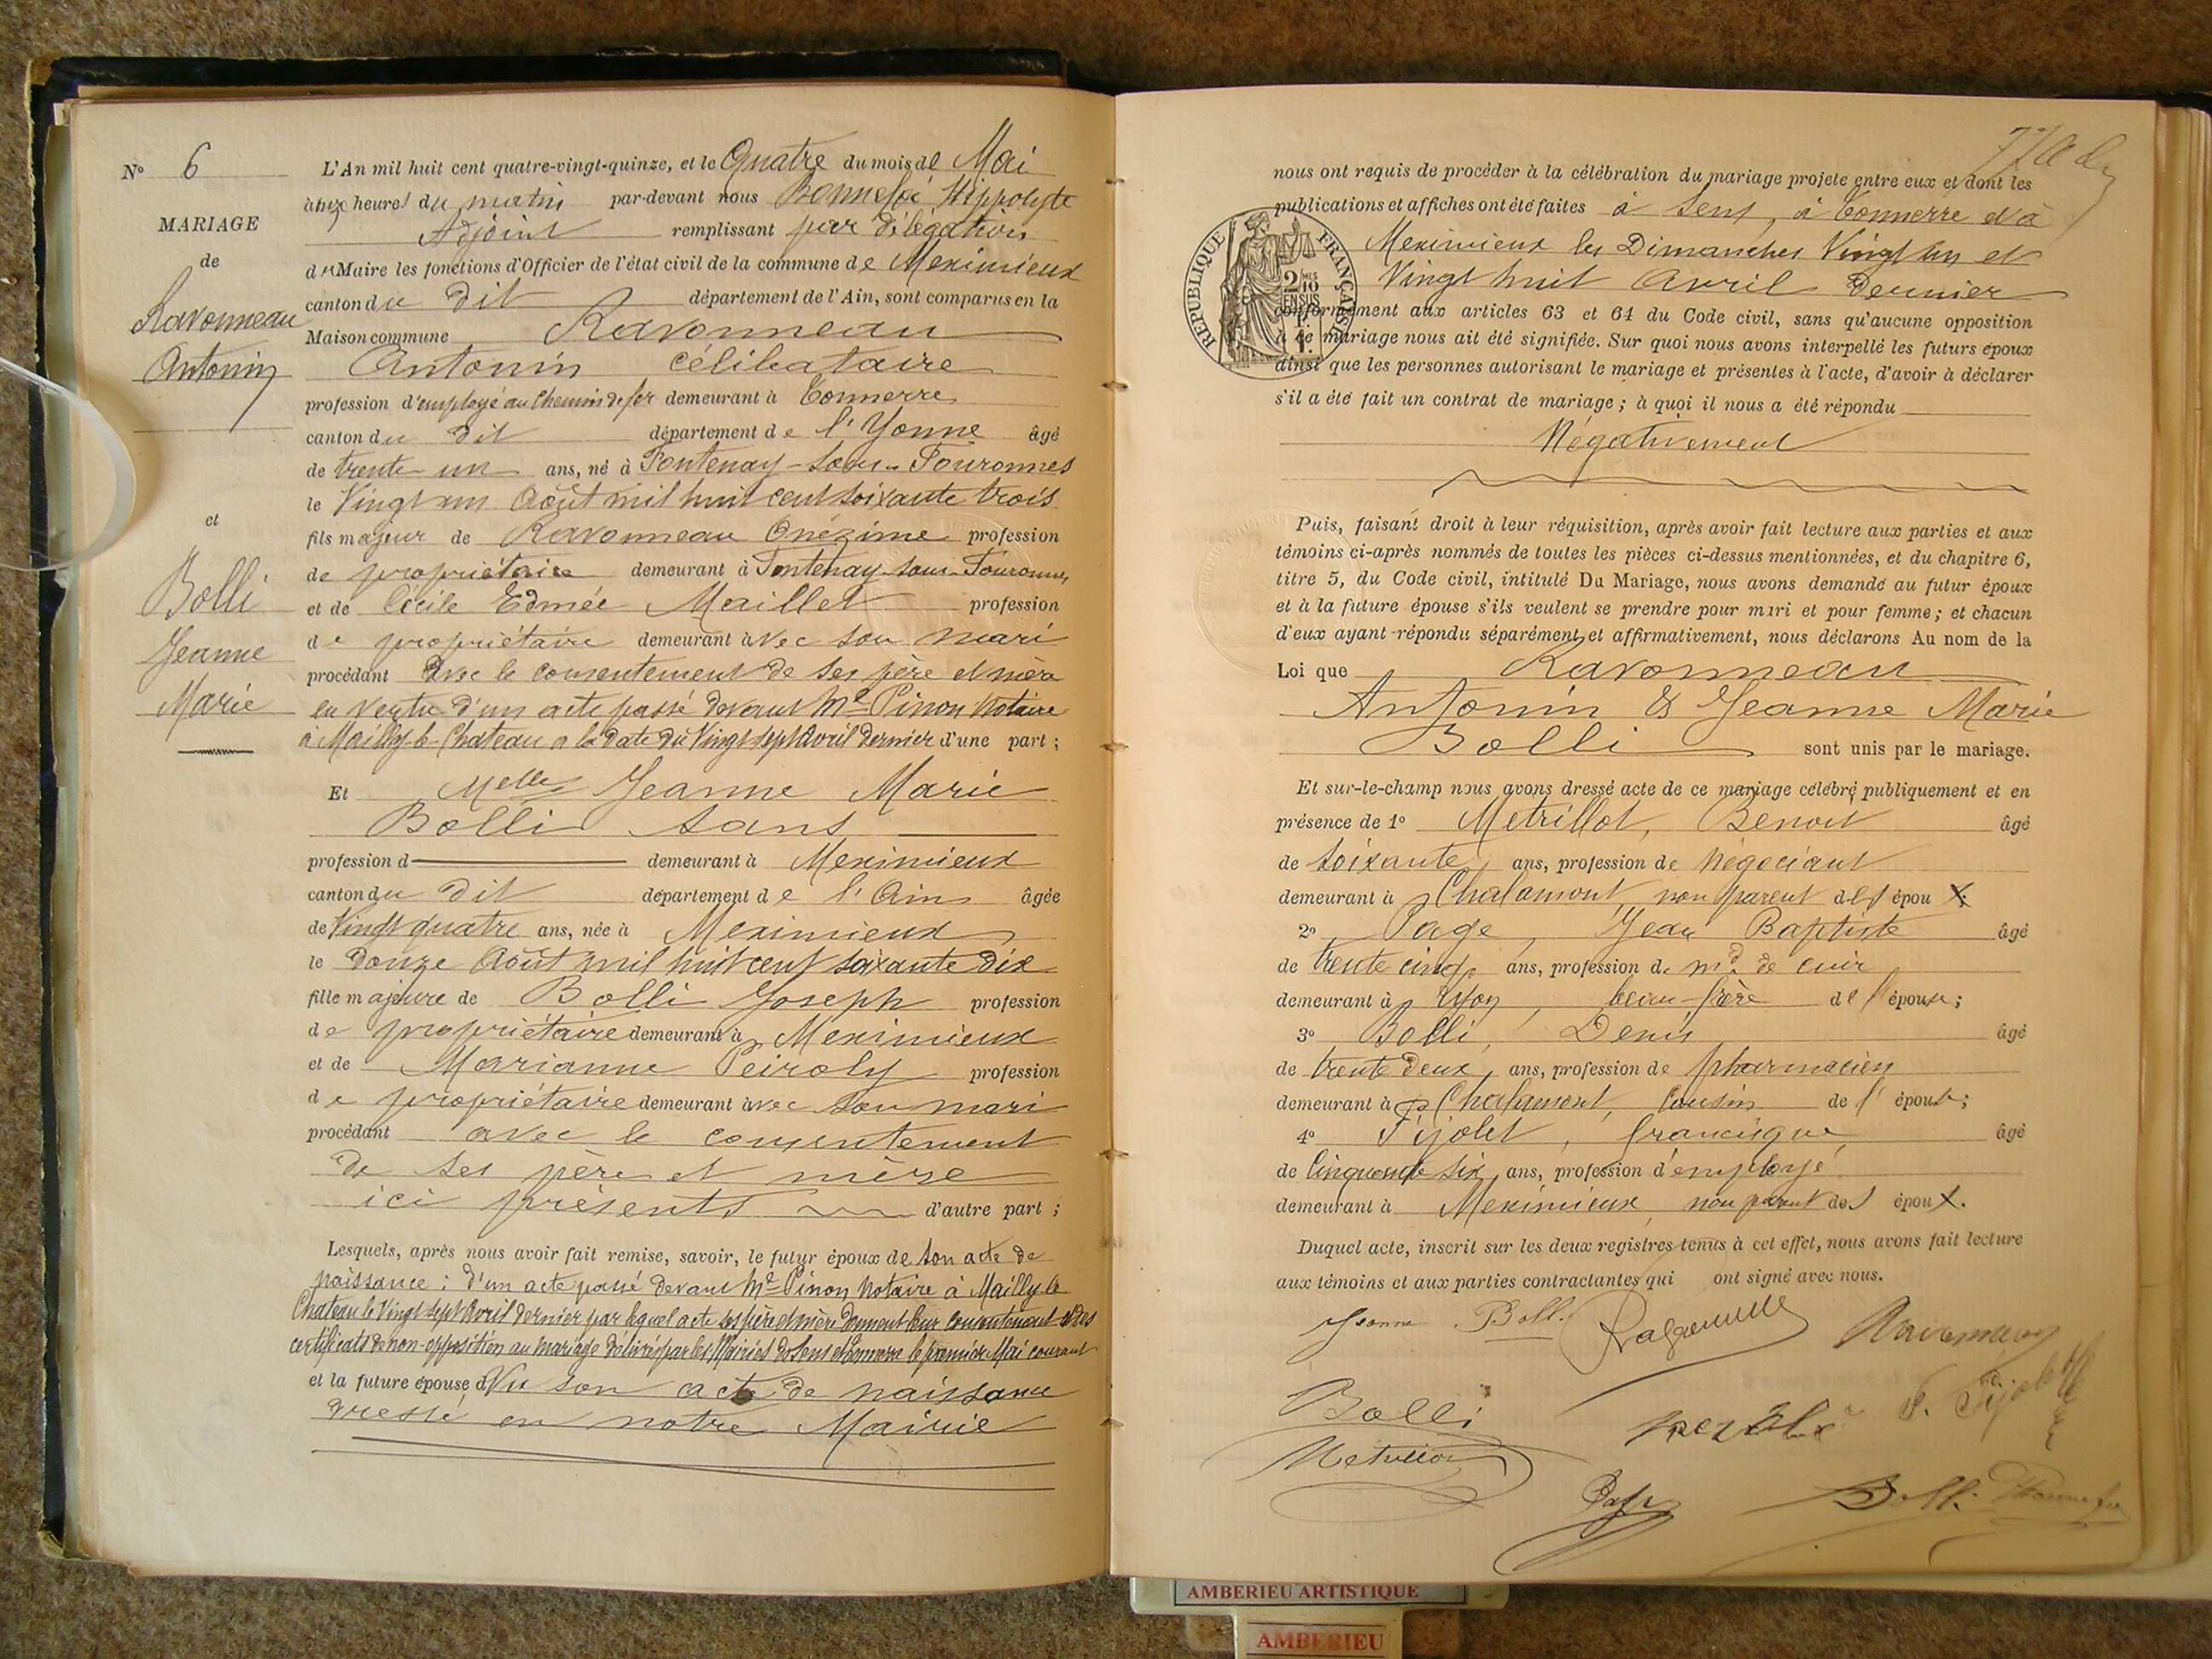 N° 6
MARIAGE
de
Ravonneau
Antonin
et
Bolli
Jeanne
Marie
L'An mil huit cent quatre-vingt-quinze, et le Quatre du mois de Mai
à onze heures du matin par-devant nous Bonnefoi Hippolyte
Adjoint remplissant par délégation
du Maire les fonctions d'Officier de l'état civil de la commune de Meximieux
canton du dit département de l'Ain, sont comparus en la
Maison commune Ravonneau
Antonin célibataire
profession d'employé au Chemin de fer demeurant à Tonnerre
canton du dit département de l'Yonne âgé
de trente un ans, né à Fontenay-sous-Fouronnes
le Vingt un Août mil huit cent soixante trois
fils majeur de Ravonneau Onézime profession
de propriétaire demeurant à Fontenay-sous-Fouronnes
et de Cécile Edmée Maillet profession
de propriétaire demeurant avec son mari
procédant avec le consentement de ses père et mère
en vertu d'un acte passé devant Me Pinon Notaire
à Mailly-le-Chateau a la date du Vingt sept Avril dernier d'une part ;
Et Melle Jeanne Marie
Bolli sans
profession d demeurant à Meximieux
canton du dit département de l'Ain âgée
de Vingt quatre ans, née à Meximieux
le douze Août mil huit cent soixante dix
fille majeure de Bolli Joseph profession
de propriétaire demeurant à Meximieux
et de Marianne Peiroly profession
de propriétaire demeurant avec son mari
procédant avec le consentement
de ses père et mère
ici présents d'autre part ;
Lesquels, après nous avoir fait remise, savoir, le futur époux de son acte de
naissance : d'un acte passé devant Me Pinon Notaire à Mailly-le
Chateau le Vingt sept Avril dernier par lequel acte ses père et mère donnent leur consentement et des
certificats de non-opposition au mariage délivrés par les Mairies de Sens et Tonnerre le premier Mai courant
et la future épouse d Vu son acte de naissance
dressé en notre Mairie
nous ont requis de procéder à la célébration du mariage projeté entre eux et dont les
publications et affiches ont été faites à Sens, à Tonnerre et à
Meximieux les Dimanches Vingt un et
Vingt huit Avril dernier
conformément aux articles 63 et 64 du Code civil, sans qu'aucune opposition
à ce mariage nous ait été signifiée. Sur quoi nous avons interpellé les futurs époux
ainsi que les personnes autorisant le mariage et présentes à l'acte, d'avoir à déclarer
s'il a été fait un contrat de mariage ; à quoi il nous a été répondu
Négativement
RÉPUBLIQUE FRANÇAISE
Puis, faisant droit à leur réquisition, après avoir fait lecture aux parties et aux
témoins ci-après nommés de toutes les pièces ci-dessus mentionnées, et du chapitre 6,
titre 5, du Code civil, intitulé Du Mariage, nous avons demandé au futur époux
et à la future épouse s'ils veulent se prendre pour mari et pour femme ; et chacun
d'eux ayant répondu séparément et affirmativement, nous déclarons Au nom de la
Loi que Ravonneau
Antonin & Jeanne Marie
Bolli sont unis par le mariage.
Et sur-le-champ nous avons dressé acte de ce mariage célébré publiquement et en
présence de 1° Metrillot, Benoit âgé
de soixante ans, profession de négociant
demeurant à Chalamont, non parent des époux
2° Page, Jean Baptiste âgé
de trente cinq ans, profession de md de cuir
demeurant à Lyon, beau-frère de l'épouse ;
3° Bolli, Denis âgé
de trente deux, ans, profession de pharmacien
demeurant à Chalamont, Cousin de l'épouse ;
4° Pijolet, Francisque âgé
de Cinquante six, ans, profession d'employé
demeurant à Meximieux non parent des époux.
Duquel acte, inscrit sur les deux registres tenus à cet effet, nous avons fait lecture
aux témoins et aux parties contractantes qui ont signé avec nous.
Jeanne Bolli
Ravonneau
Bolli
Metrillot
Page
Bolli Bonnefoi
AMBERIEU ARTISTIQUE
AMBERIEU